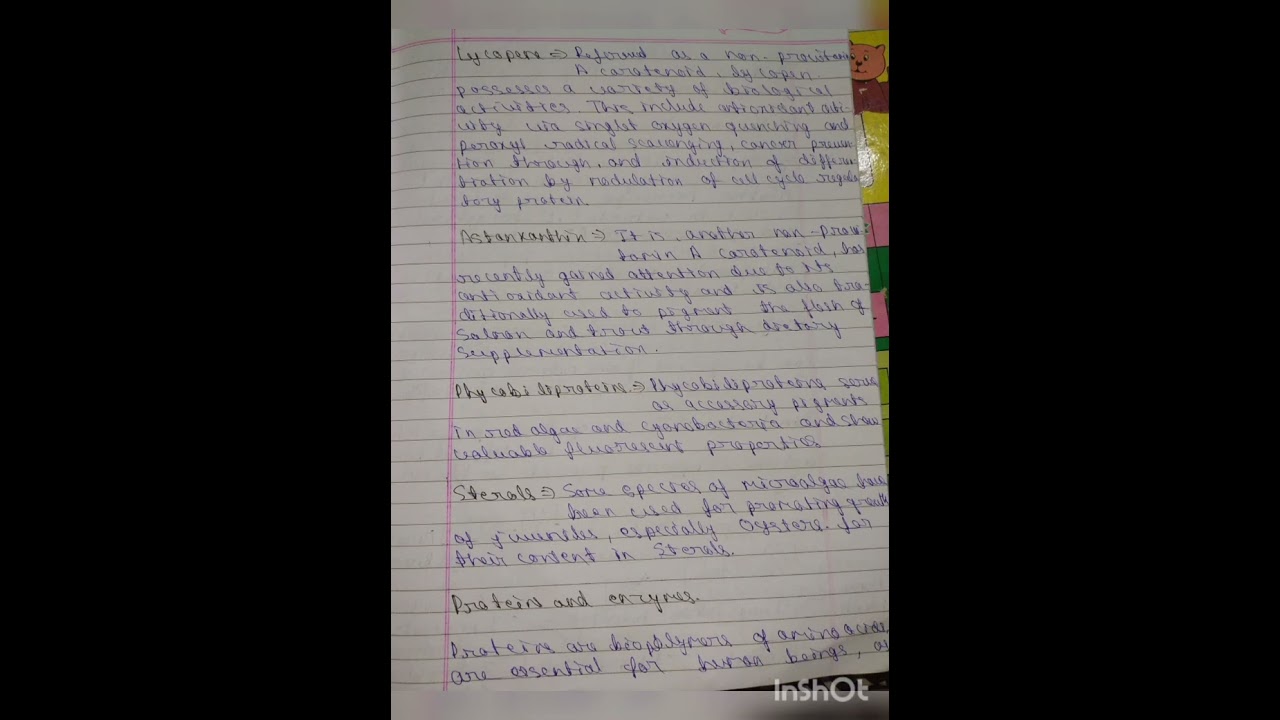 Lycopene ⇒ Refoured as a non-provitamin
A caratenoid, Lycopen
possesses a variety of biological
activities. This include antioxidant acti-
vity via singlet oxygen quenching and
peroxyl radical scavenging, cancer preven
tion through, and induction of differen
tiation by nodulation of cell cycle regula
tory protein.
Astanxanthin ⇒ It is another non-provi-
tamin A caratenoid, has
recently gained attention due to its
antioxidant activity and is also tra-
ditionally used to pigment the flesh of
Salmon and trout through dietary
Supplementation.
Phycobiliproteins ⇒ Phycobiliproteins serve
as accessory pigments
in red algae and cyanobacteria and show
valuable fluorescent properties
Sterols ⇒ Some species of microalgae have
been used for promoting growth
of juveniles, especially Oysters. for
their content in Sterols.
Proteins and enzymes.
Proteins are biopolymers of amino acids,
are essential for human beings, as
InShOt